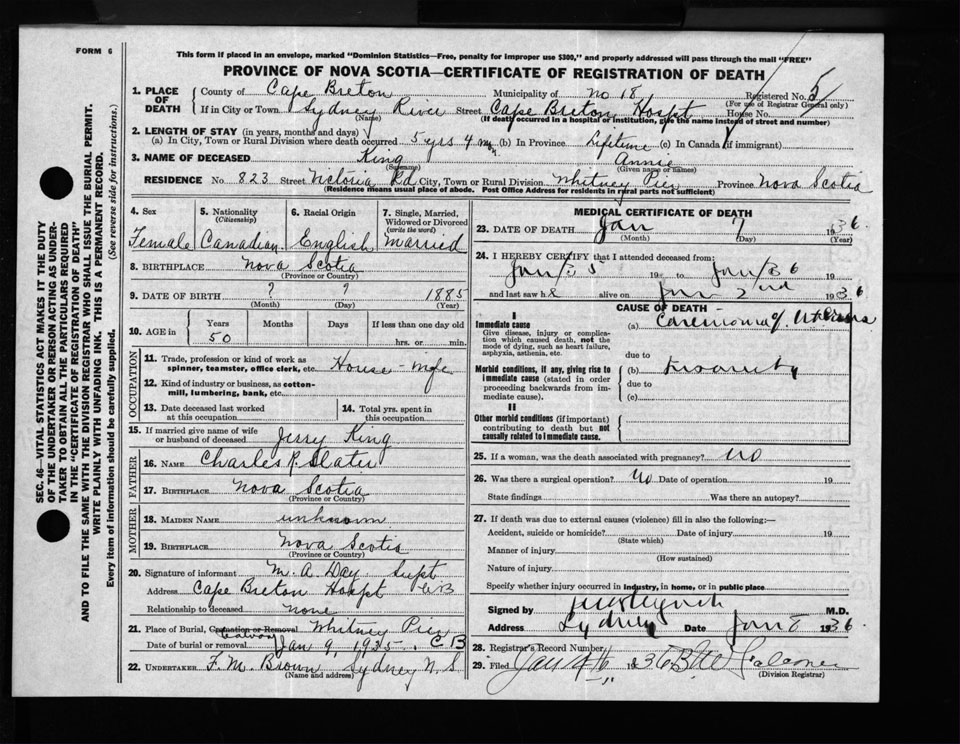 FORM 6
This form if placed in an envelope, marked "Dominion Statistics—Free, penalty for improper use $300," and properly addressed will pass through the mail "FREE"
PROVINCE OF NOVA SCOTIA—CERTIFICATE OF REGISTRATION OF DEATH
SEC. 46—VITAL STATISTICS ACT MAKES IT THE DUTY
OF THE UNDERTAKER OR PERSON ACTING AS UNDER-
TAKER TO OBTAIN ALL THE PARTICULARS REQUIRED
IN THE "CERTIFICATE OF REGISTRATION OF DEATH"
AND TO FILE THE SAME WITH THE DIVISION REGISTRAR WHO SHALL ISSUE THE BURIAL PERMIT.
WRITE PLAINLY WITH UNFADING INK. THIS IS A PERMANENT RECORD.
Every item of information should be carefully supplied. (See reverse side for instructions.)
1. PLACE OF DEATH County of Cape Breton Municipality of No 18 Registered No. 5
(For use of Registrar General only)
If in City or Town Sydney River Street Cape Breton Hospt House No.
(Name) (If death occurred in a hospital or institution, give the name instead of street and number)
2. LENGTH OF STAY (in years, months and days)
(a) In City, Town or Rural Division where death occurred 5 yrs 4 (b) In Province Lifetime (c) In Canada (if immigrant)
3. NAME OF DECEASED King Annie
(Surname) (Given name or names)
RESIDENCE No. 823 Street Victoria Rd City, Town or Rural Division Whitney Pier Province Nova Scotia
(Residence means usual place of abode. Post Office Address for residents in rural parts not sufficient)
4. Sex Female
5. Nationality (Citizenship) Canadian
6. Racial Origin English
7. Single, Married, Widowed or Divorced (write the word) Married
8. BIRTHPLACE Nova Scotia
(Province or Country)
9. DATE OF BIRTH ? ? 1885
(Month) (Day) (Year)
10. AGE in Years 50 Months Days If less than one day old hrs. or min.
OCCUPATION
11. Trade, profession or kind of work as spinner, teamster, office clerk, etc. House-wife
12. Kind of industry or business, as cotton-mill, lumbering, bank, etc.
13. Date deceased last worked at this occupation
14. Total yrs. spent in this occupation
15. If married give name of wife or husband of deceased Jerry King
FATHER
16. NAME Charles P. Slater
17. BIRTHPLACE Nova Scotia
(Province or Country)
MOTHER
18. MAIDEN NAME unknown
19. BIRTHPLACE Nova Scotia
(Province or Country)
20. Signature of informant M. A. Day Supt
Address Cape Breton Hospt CB
Relationship to deceased none
21. Place of Burial, Cremation or Removal Whitney Pier C B
Calvary
Date of burial or removal Jan 9, 1935
22. UNDERTAKER F. M. Brown Sydney N. S
(Name and address)
MEDICAL CERTIFICATE OF DEATH
23. DATE OF DEATH Jan 7 1936
(Month) (Day) (Year)
24. I HEREBY CERTIFY that I attended deceased from:
19 to
and last saw h alive on Jan 2nd 1936
CAUSE OF DEATH
I
Immediate cause
Give disease, injury or complication which caused death, not the mode of dying, such as heart failure, asphyxia, asthenia, etc.
(a) Carcinoma of Uterus
due to
Morbid conditions, if any, giving rise to immediate cause (stated in order proceeding backwards from immediate cause).
(b) Insanity
due to
(c)
II
Other morbid conditions (if important) contributing to death but not causally related to immediate cause.
25. If a woman, was the death associated with pregnancy? No
26. Was there a surgical operation? No Date of operation 19
State findings Was there an autopsy?
27. If death was due to external causes (violence) fill in also the following:—
Accident, suicide or homicide? Date of injury 19
(State which)
Manner of injury
(How sustained)
Nature of injury
Specify whether injury occurred in industry, in home, or in public place
Signed by M.D.
Address Sydney Date Jan 8 1936
28. Registrar's Record Number
29. Filed Jan 1936 Falconer
(Division Registrar)